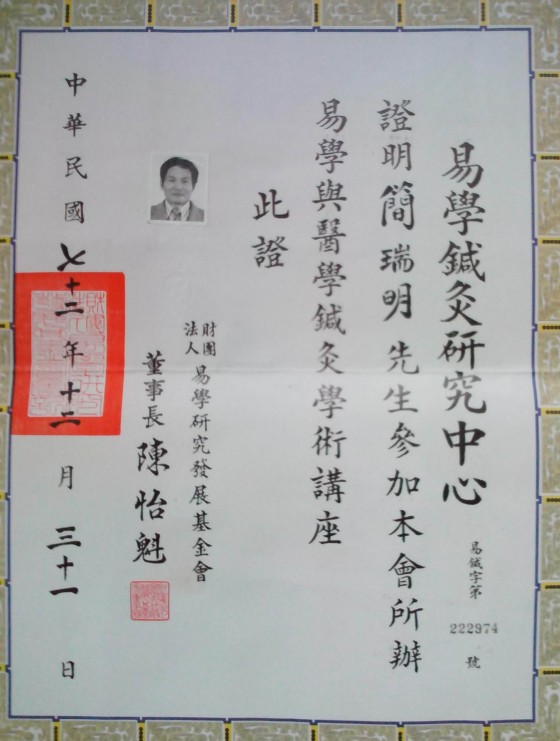 易學鍼灸研究中心
易鍼字第222974號
證明簡瑞明先生參加本會所辦
易學與醫學鍼灸學術講座
此證
財團法人易學研究發展基金會
董事長陳怡魁
中華民國七十二年十二月三十一日